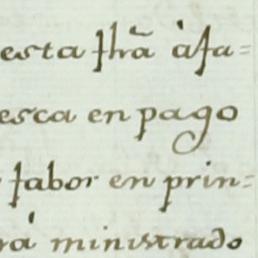 esta ſhã à fa=
esca en pago
fabor en prin=
rá ministrado